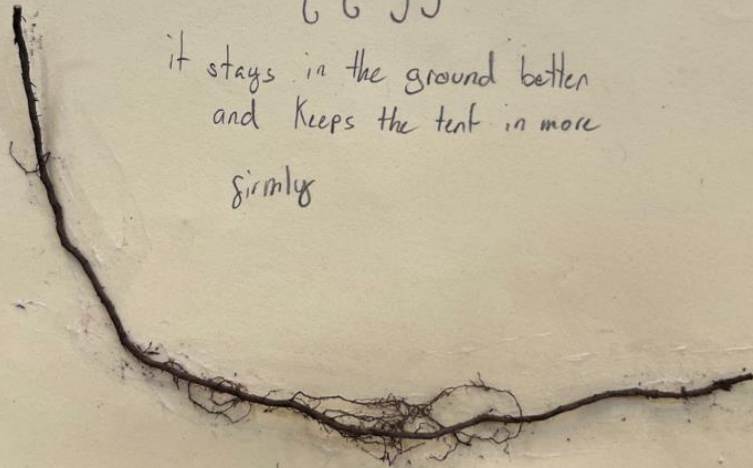 it stays in the ground better
and Keeps the tent in more
firmly